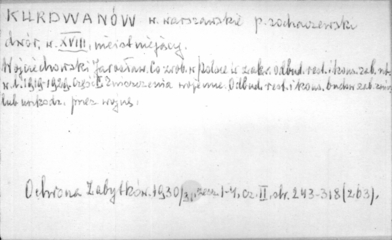 KURDWANÓW w. warszawskie p. sochaczewski
dwór, w. XVIII, nieistniejący.
Wojciechowski Jarosław. Co zrob. w Polsce w zakr. odbud. rest. i kons. zab.
w l. 1919-1929. Część I. Zniszczenia wojenne. Odbud. rest. i kons. budow. zab. zniszcz.
lub uszkodz. przez wojnę.
Ochrona Zabytków. 1930/31, zesz. 1-4, cz. II, str. 243-318 (263).